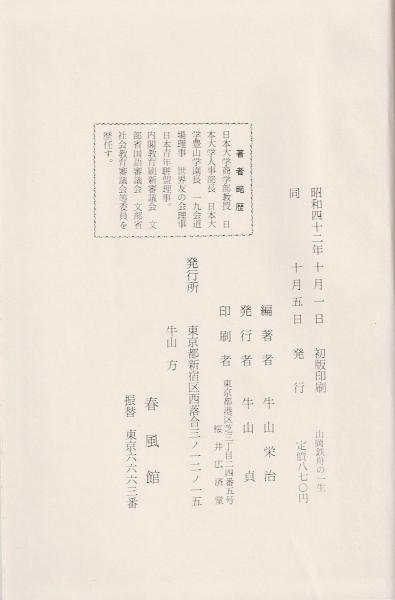 山岡鉄舟の一生
定価八七〇円
昭和四十二年 十月一日 初版印刷
同 十月五日 発行
編著者 牛山栄治
発行者 牛山貞
東京都港区芝三丁目二四番五号
印刷者 桜井広済堂
発行所 東京都新宿区西落合三ノ一二ノ一五
牛山方
春風館
振替 東京六六六三番
著者略歴
日本大学商学部教授 日
本大学人事部長 日本大
学豊山学園長 一九会道
場理事 世界友の会理事
日本青年聯盟理事。
内閣教育刷新審議会 文
部省国語審議会 文部省
社会教育審議会等委員を
歴任す。